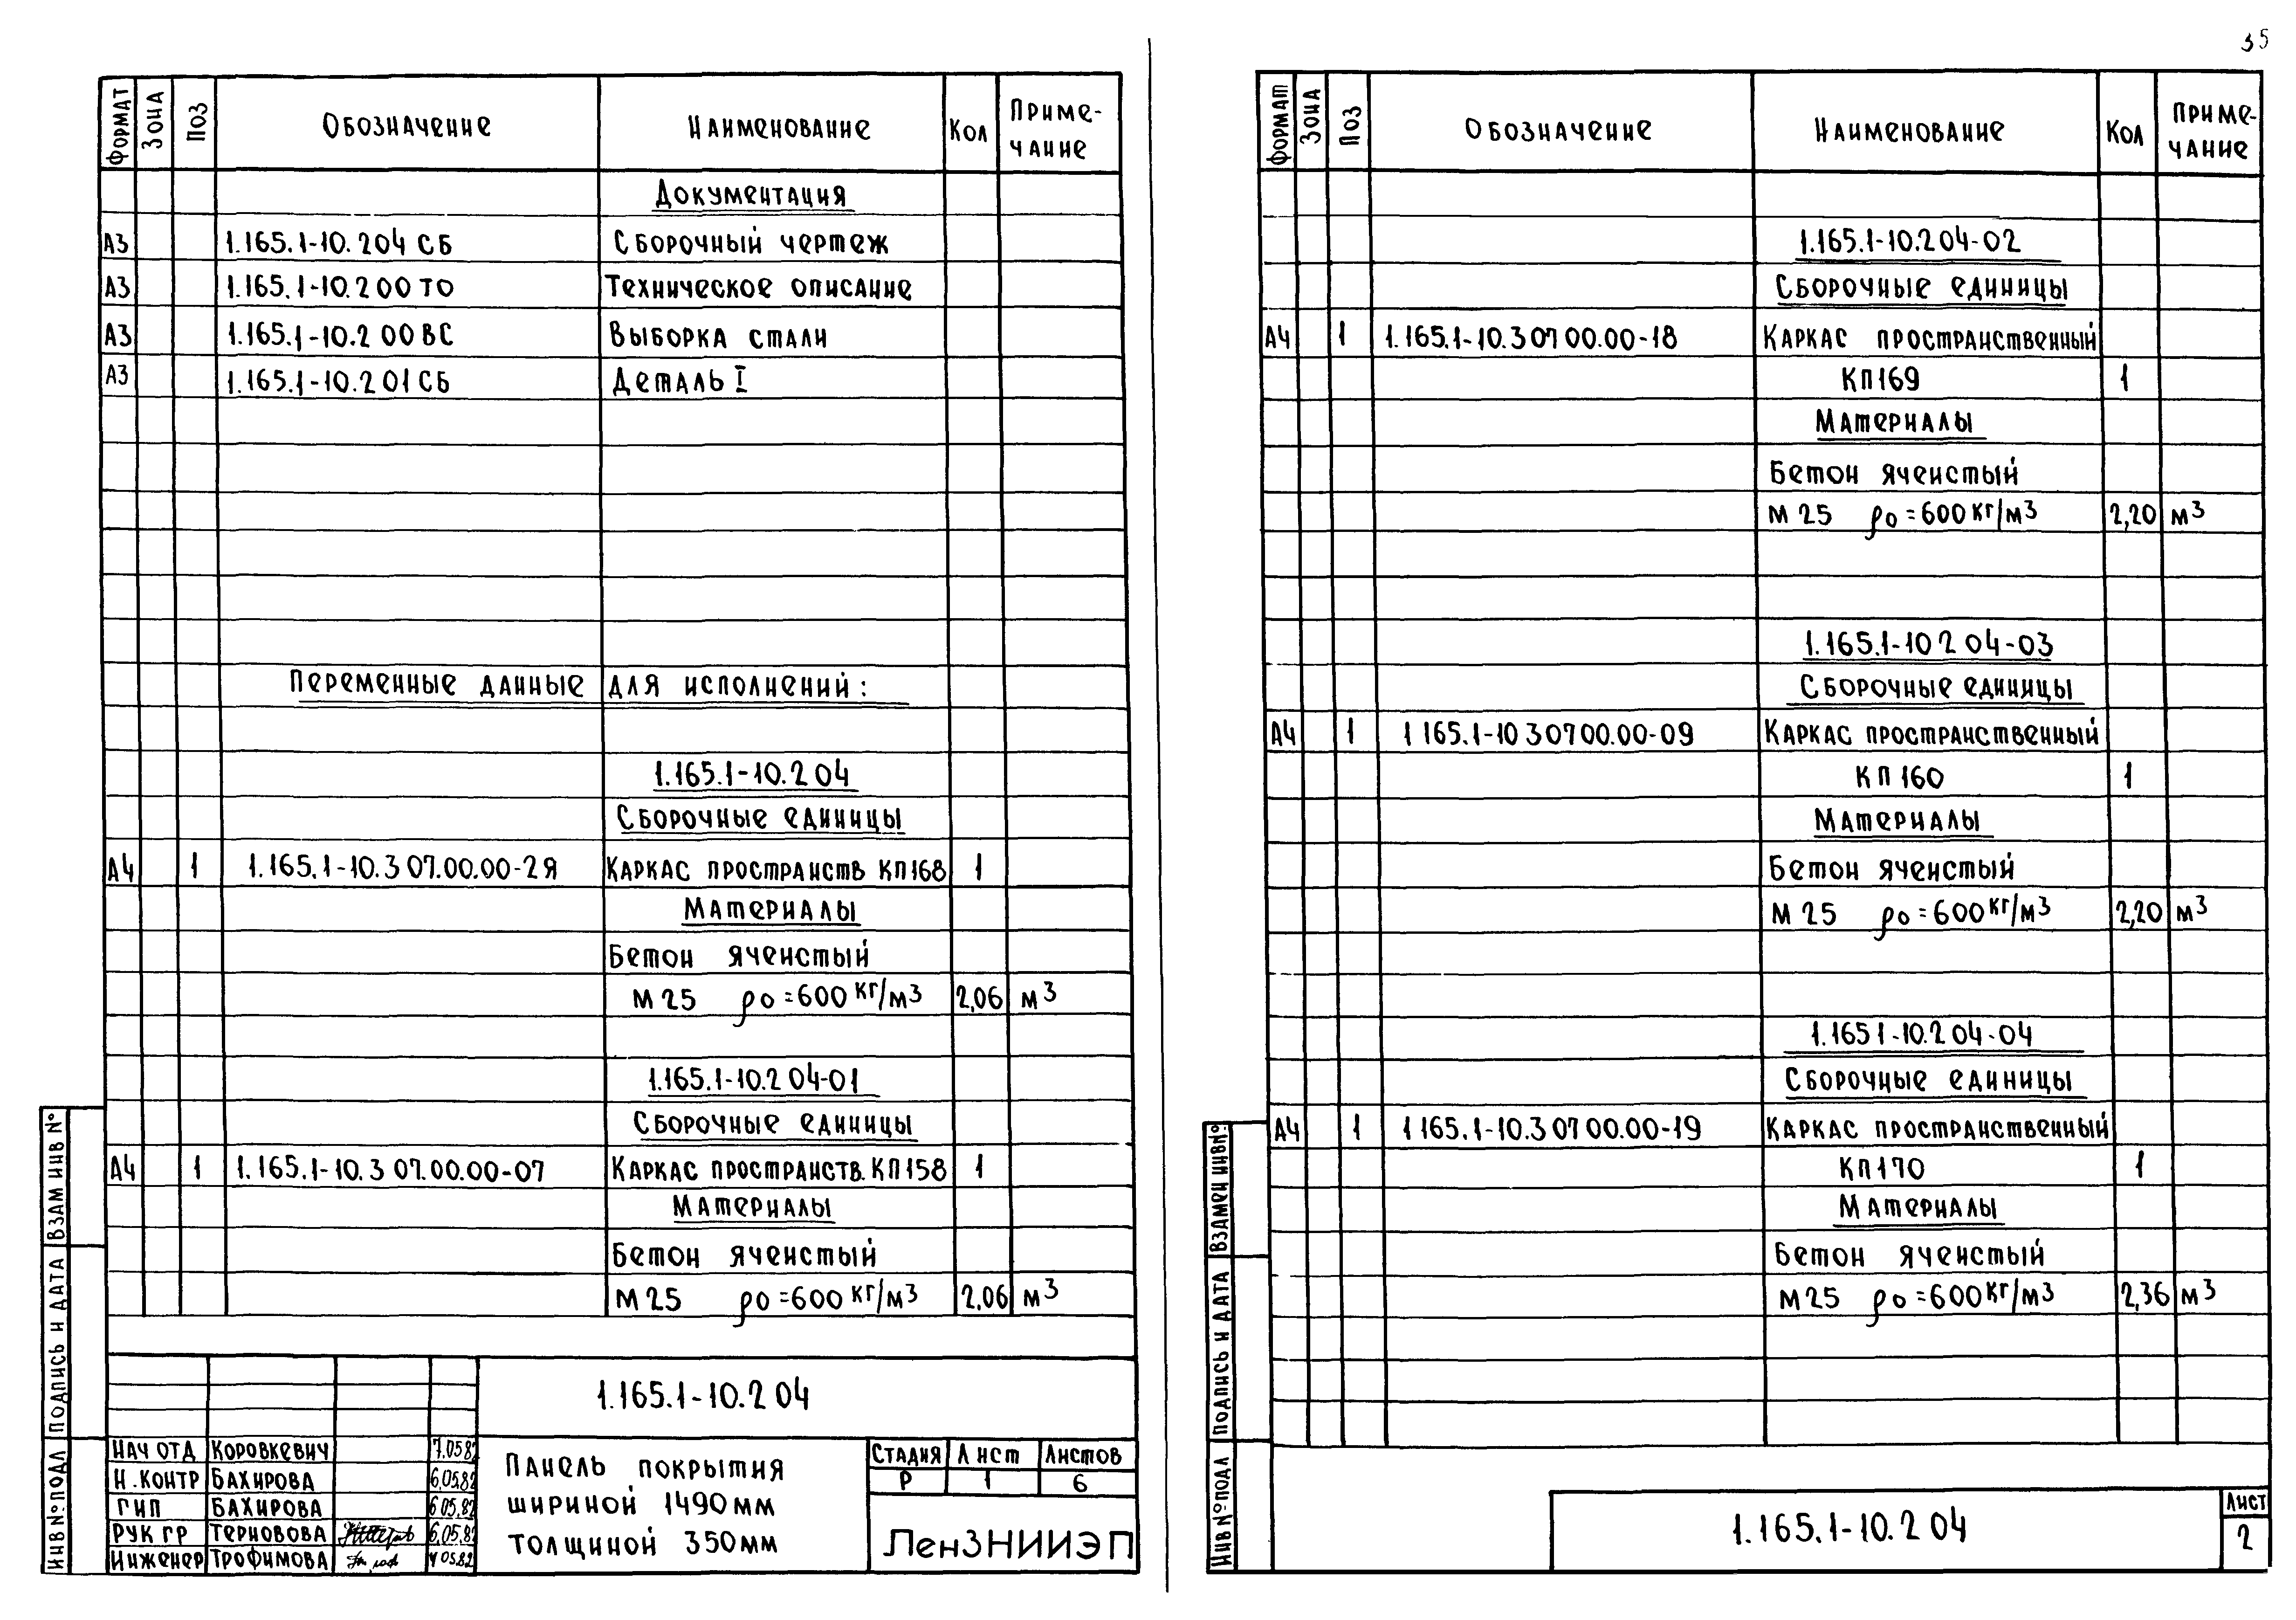 35
Формат Зона Поз Обозначение Наименование Кол Приме-
чание
Документация
А3 1.165.1-10.204 СБ Сборочный чертеж
А3 1.165.1-10.200 ТО Техническое описание
А3 1.165.1-10.2 00 ВС Выборка стали
А3 1.165.1-10.2 01 СБ Деталь I
Переменные данные для исполнений:
1.165.1-10.2 04
Сборочные единицы
А4 1 1.165.1-10.3 07.00.00-2Я Каркас пространств КП168 1
Материалы
Бетон ячеистый
М 25 ρо=600 кг/м3 2,06 м3
1.165.1-10.2 04-01
Сборочные единицы
А4 1 1.165.1-10.3 07.00.00-07 Каркас пространств. КП158 1
Материалы
Бетон ячеистый
М 25 ρо=600 кг/м3 2,06 м3
1.165.1-10.2 04
Нач отд Коровкевич 7.05.82
Н.контр Бахирова 6.05.82
ГИП Бахирова 6.05.82
Рук гр Терновова 6.05.82
Инженер Трофимова 4 05.82
Панель покрытия
шириной 1490мм
толщиной 350мм
Стадия Лист Листов
Р 1 6
ЛенЗНИИЭП
Инв № подл Подпись и дата Взам инв №
Формат Зона Поз Обозначение Наименование Кол Приме-
чание
1.165.1-10.204-02
Сборочные единицы
А4 1 1.165.1-10.3 07 00.00-18 Каркас пространственный
КП169 1
Материалы
Бетон ячеистый
М 25 ρо=600 кг/м3 2,20 м3
1.165.1-10 2 04-03
Сборочные единицы
А4 1 1 165.1-10 3 07 00.00-09 Каркас пространственный
КП 160 1
Материалы
Бетон ячеистый
М 25 ρо=600 кг/м3 2,20 м3
1.165 1-10.2 04-04
Сборочные единицы
А4 1 1 165.1-10.3 07 00.00-19 Каркас пространственный
КП170 1
Материалы
Бетон ячеистый
М 25 ρо=600 кг/м3 2,36 м3
1.165.1-10.2 04
Лист
2
Инв № подл Подпись и дата Взамен инв №